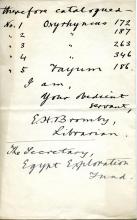 therefore catalogued –
No. 1 Oxyrhyncus 172
" 2 " 187
" 3 " 263
" 4 " 346
" 5 Fayum 186
I am,
Your obedient
servant,
E.H. Bromby,
Librarian.
The Secretary,
Egypt Exploration
Fund.